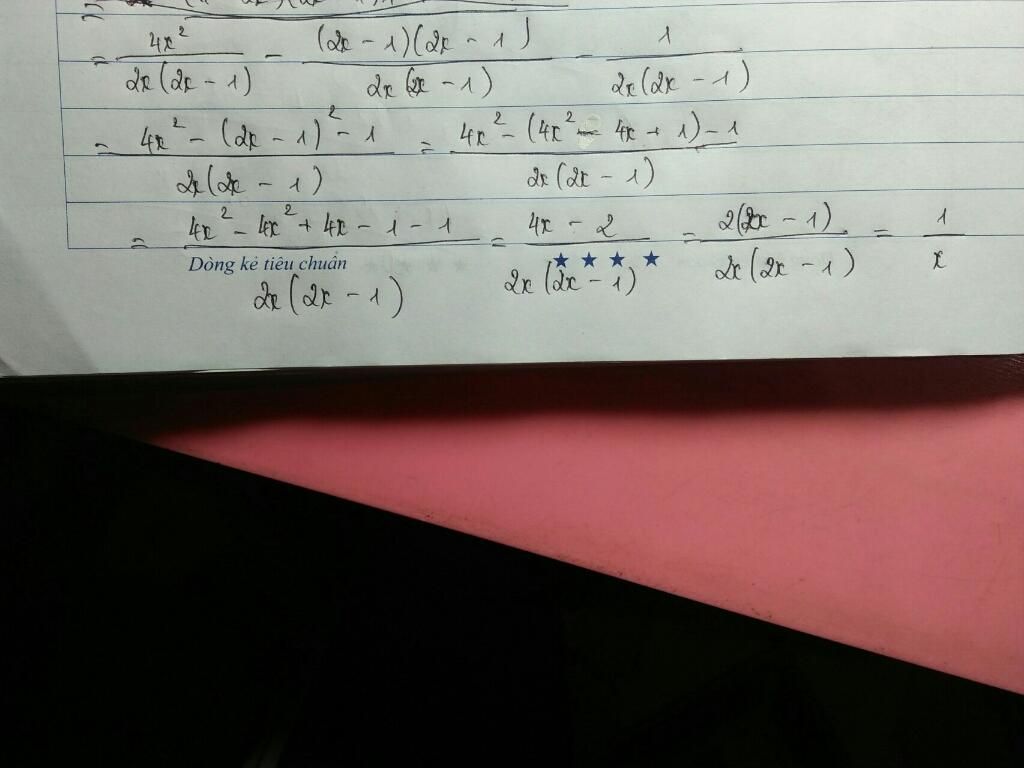 = 4x²/2x(2x − 1) − (2x − 1)(2x − 1)/2x(2x − 1) − 1/2x(2x − 1)
= 4x² − (2x − 1)² − 1/2x(2x − 1) = 4x² − (4x² − 4x + 1) − 1/2x(2x − 1)
= 4x² − 4x² + 4x − 1 − 1/2x(2x − 1) = 4x − 2/2x(2x − 1) = 2(2x − 1)/2x(2x − 1) = 1/x
Dòng kẻ tiêu chuẩn ★ ★ ★ ★